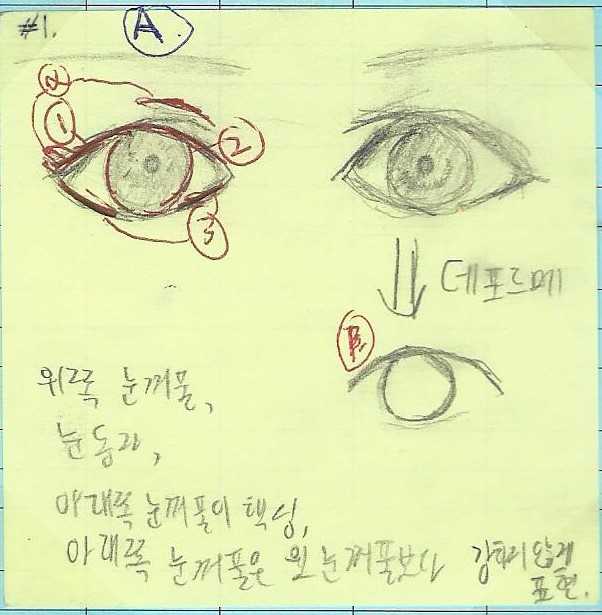 #1.
A.
α
1
2
3
데포르메
β.
위쪽 눈꺼풀,
눈동자,
아래쪽 눈꺼풀이 핵심,
아래쪽 눈꺼풀은 윗눈꺼풀보다 강하지 않게
표현.